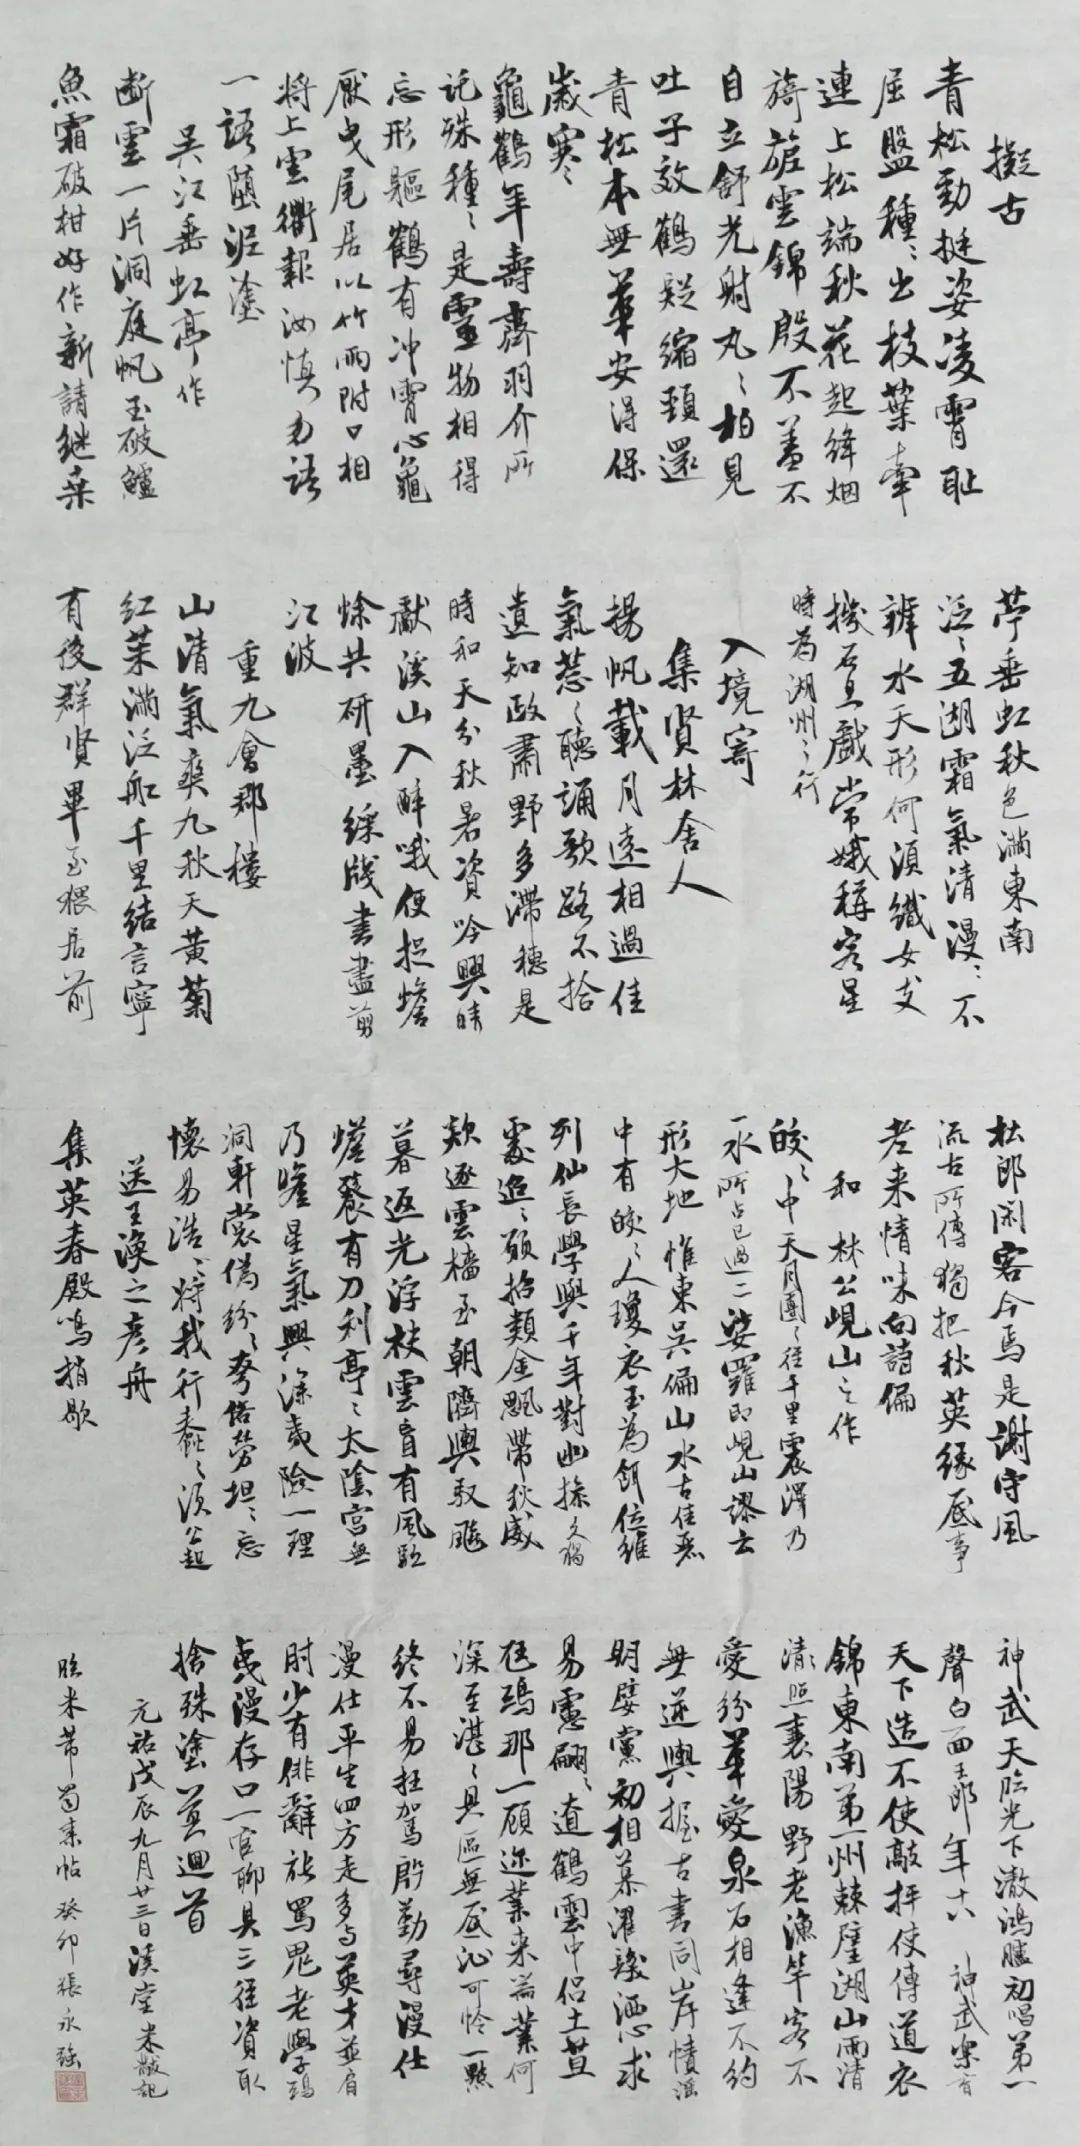 擬古
青松勁挺姿凌霄恥
屈盤種〻出枝葉牽
連上松端秋花起絳烟
旖旎雲錦殷不羞不
自立舒光射丸〻柏見
吐子效鶴疑縮頸還
青松本無華安得保
歲寒
龜鶴年壽齊羽介所
託殊種〻是靈物相得
忘形軀鶴有冲霄心龜
厭曳尾居以竹兩附口相
將上雲衢報汝慎勿語
一語墮泥塗
吳江垂虹亭作
斷雲一片洞庭帆玉破鱸
魚霜破柑好作新詩繼桑
苧垂虹秋色滿東南
泛〻五湖霜氣清漫〻不
辨水天形何須織女支
機石且戲常娥稱客星
時為湖州之行
入境寄
集賢林舍人
揚帆載月遠相過佳
氣蔥〻聽誦歌路不拾
遺知政肅野多滯穗是
時和天分秋暑資吟興晴
獻溪山入醉哦便捉蟾
蜍共研墨綵牋書盡剪
江波
重九會郡樓
山清氣爽九秋天黃菊
紅茱滿泛船千里結言寧
有後群賢畢至猥居前
杜郎閑客今焉是謝守風
流古所傳獨把秋英緣底事
老來情味向詩偏
和林公峴山之作
皎〻中天月團〻徑千里震澤乃
一水所占已過二娑羅即峴山謬云
形大地惟東吳偏山水古佳麗
中有皎〻人瓊衣玉為餌位維
列仙長學與千年對幽操久獨
處迢〻願招類金颷帶秋威
欻逐雲檣至朝隮輿馭飈
暮返光浮袂雲盲有風驅
蟾餮有刀利亭〻太陰宮無
乃瞻星氣興深夷險一理
洞軒裳偽紛〻夸俗勞坦〻忘
懷易浩〻將我行蠢〻須公起
送王渙之彥舟
集英春殿鳴梢歇
神武天臨光下澈鴻臚初唱第一
聲白面王郎年十八神武樂育
天下造不使敲抨使傳道衣
錦東南第一州棘璧湖山兩清
清〻照襄陽野老漁竿客不
愛紛華愛泉石相逢不約
無逆輿握古書同岸幘淫
朋嬖黨初相慕濯髮洒心求
易慮翩〻遼鶴雲中侶土苴
尫鴟那一顧邇業來器業何
深至湛〻具區無底沚可怜一點
終不易枉駕殷勤尋漫仕
漫仕平生四方走多与英才並肩
肘少有俳辭能罵鬼老學鴟
夷漫存口一官聊具三徑資取
捨殊塗莫迴首
元祐戊辰九月廿三日溪堂米黻記
臨米芾蜀素帖癸卯張永強